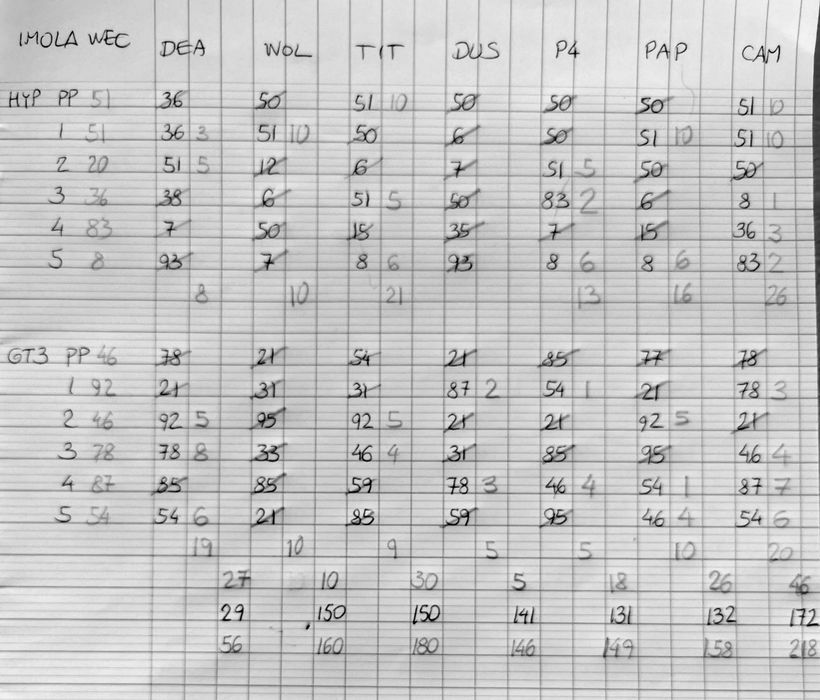 IMOLA WEC DEA WOL TIT DUS P4 PAP CAM
HYP PP 51 36 50 51 10 50 50 50 51 10
1 51 36 3 51 10 50 6 50 51 10 51 10
2 20 51 5 12 6 7 51 5 50 50
3 36 38 6 51 5 50 83 2 6 8 1
4 83 7 50 15 35 7 15 36 3
5 8 93 7 8 6 93 8 6 8 6 83 2
8 10 21 13 16 26
GT3 PP 46 78 21 54 21 85 77 78
1 92 21 31 31 87 2 54 1 21 78 3
2 46 92 5 95 92 5 21 21 92 5 21
3 78 78 8 33 46 4 31 85 95 46 4
4 87 85 85 59 78 3 46 4 54 1 87 7
5 54 54 6 21 85 59 95 46 4 54 6
19 10 9 5 5 10 20
27 10 30 5 18 26 46
29 150 150 141 131 132 172
56 160 180 146 149 158 218